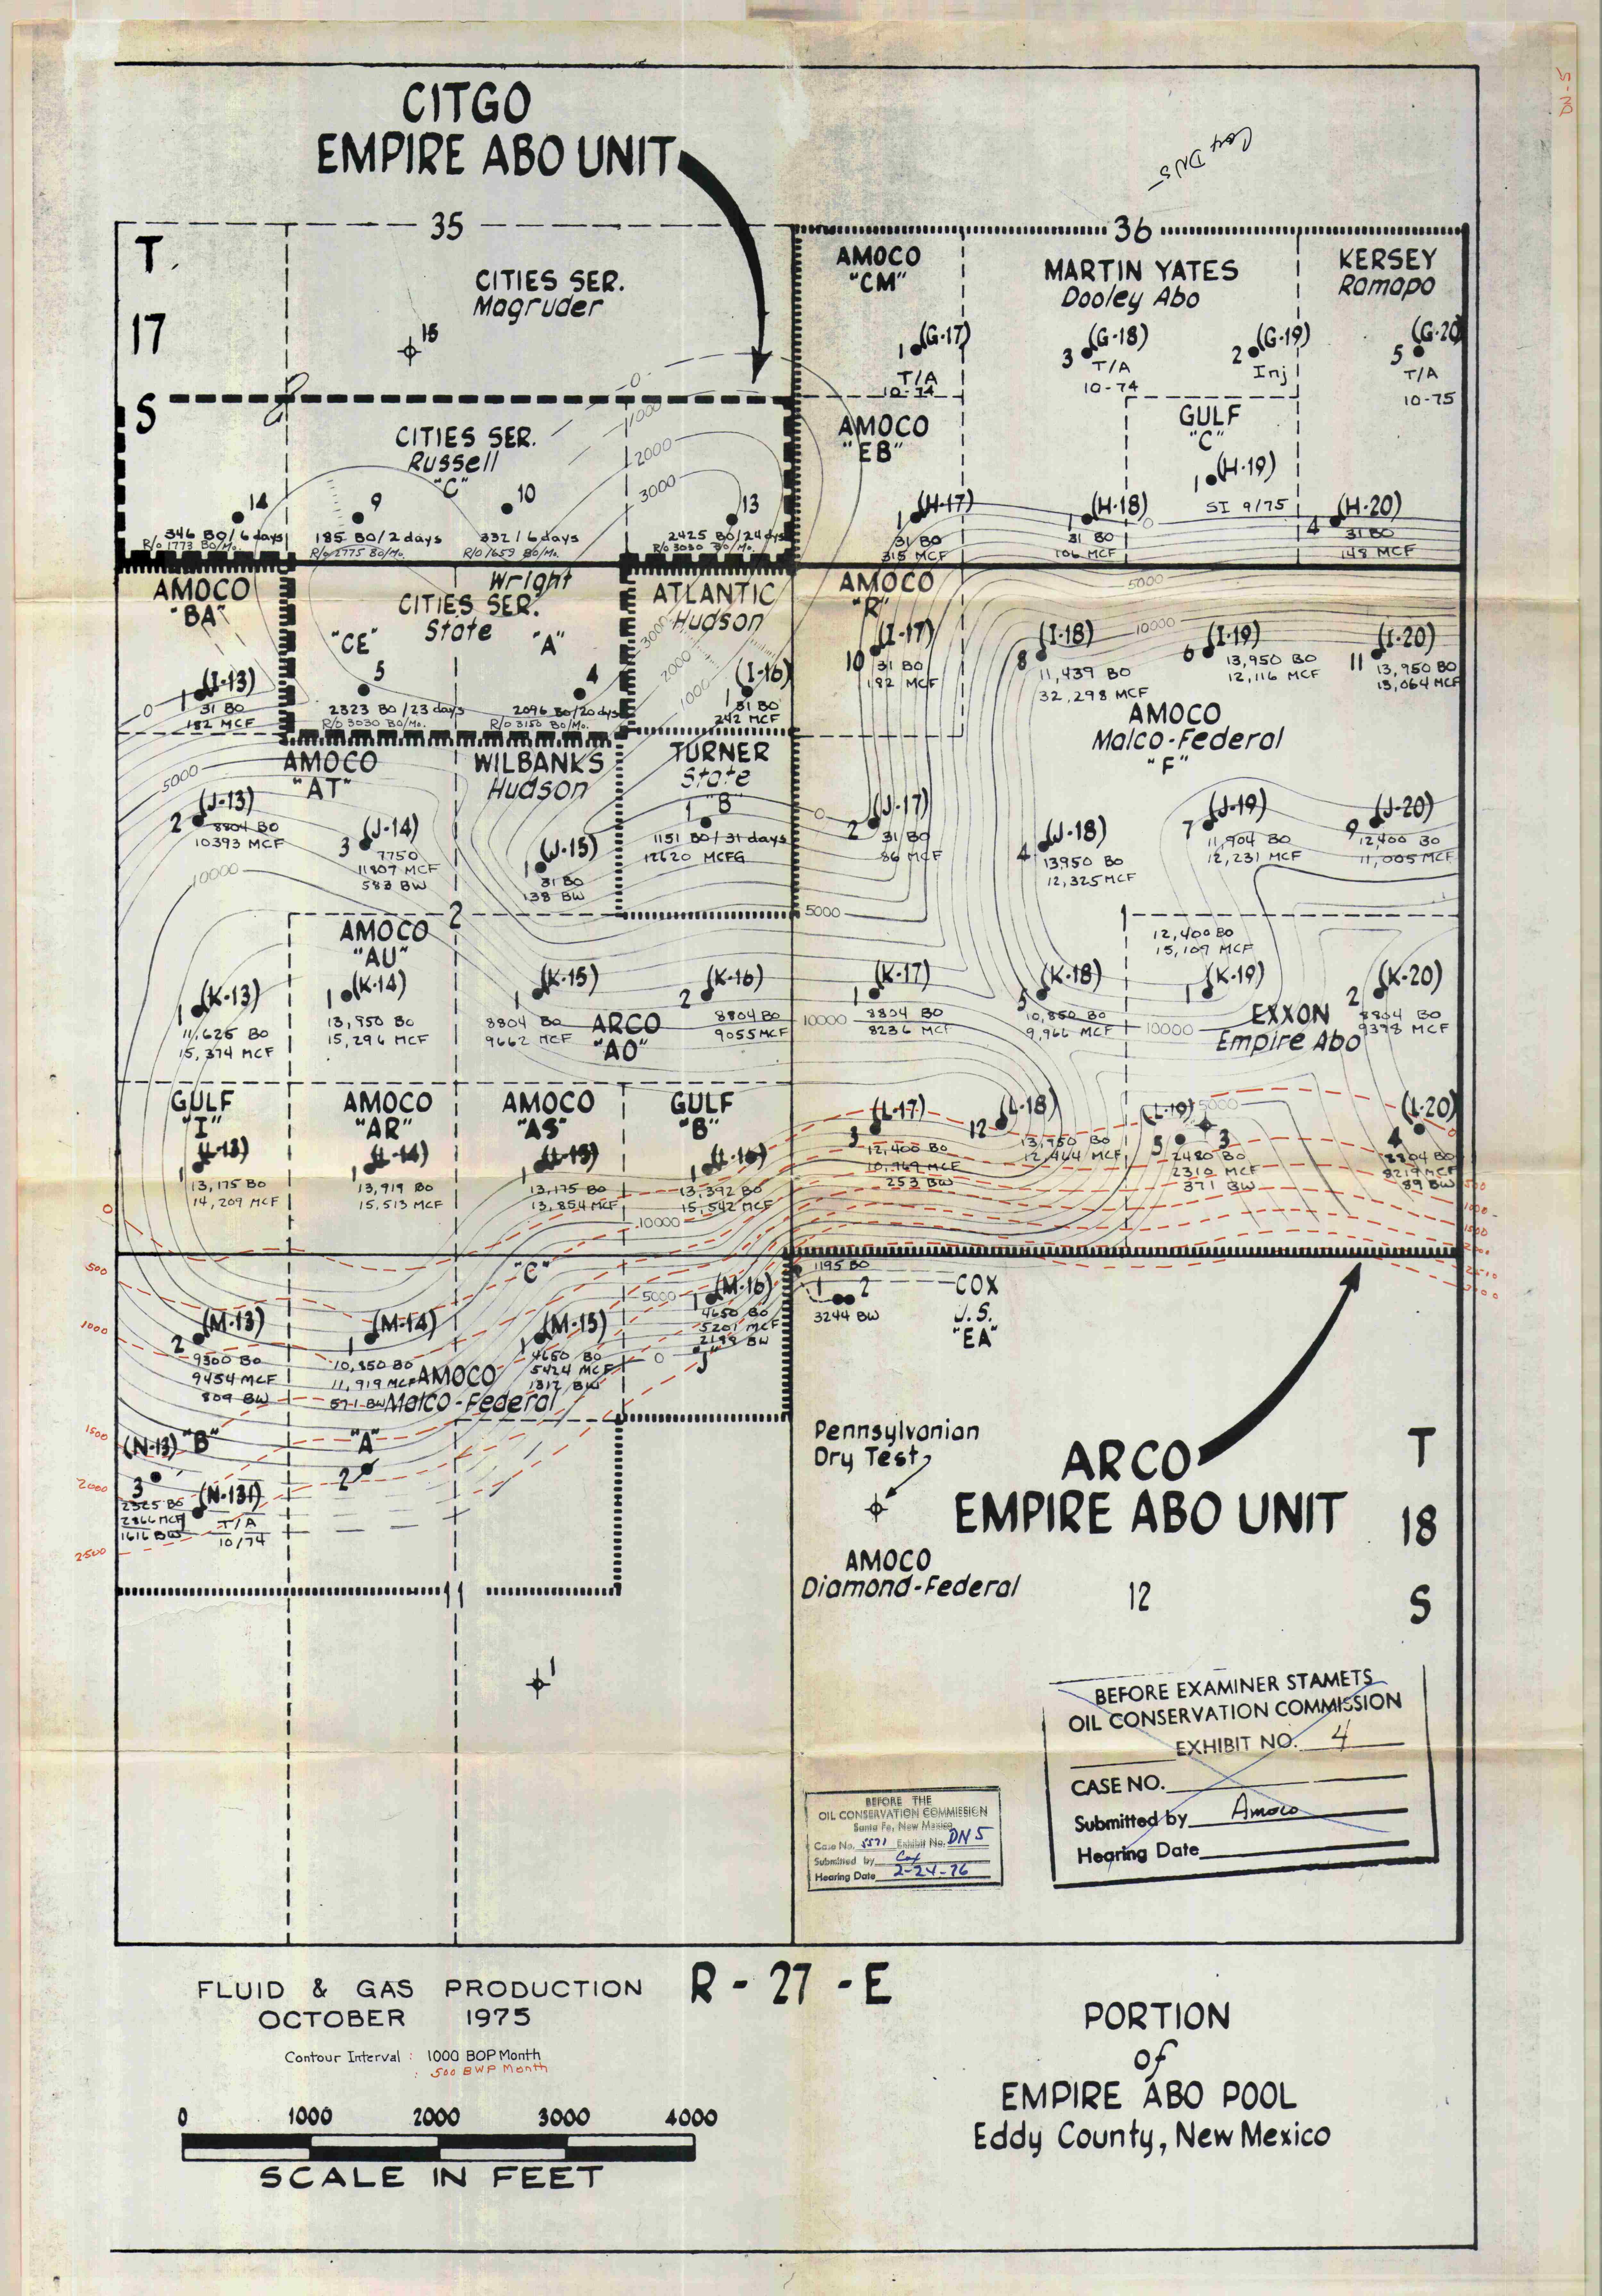 CITGO
EMPIRE ABO UNIT
Cox DN5
DN-5
35
36
T.
17
S
CITIES SER.
Magruder
15
AMOCO
"CM"
MARTIN YATES
Dooley Abo
KERSEY
Ramapo
1 (G-17)
T/A
10-74
3 (G-18)
T/A
10-74
2 (G-19)
Inj
5 (G-20)
T/A
10-75
0
1000
2000
3000
CITIES SER.
Russell
"C"
AMOCO
"EB"
GULF
"C"
1 (H-19)
SI 9/75
14
346 BO/6 days
R/O 1773 BO/Mo.
9
185 BO/2 days
R/O 2775 BO/Mo.
10
332/6 days
R/O 1659 BO/Mo.
13
2425 BO/24 days
R/O 3030 BO/Mo.
1 (H-17)
31 BO
315 MCF
1 (H-18)
31 BO
106 MCF
0
4 (H-20)
31 BO
148 MCF
AMOCO
"BA"
Wright
CITIES SER.
State
"CE"
"A"
ATLANTIC
Hudson
AMOCO
"R"
5000
10000
1 (I-13)
31 BO
182 MCF
0
5
2323 BO/23 days
R/O 3030 BO/Mo.
4
2096 BO/20 days
R/O 3150 BO/Mo.
3000
2000
1000
1 (I-16)
31 BO
242 MCF
10 (I-17)
31 BO
192 MCF
8 (I-18)
11,439 BO
32,298 MCF
6 (I-19)
13,950 BO
12,116 MCF
11 (I-20)
13,950 BO
13,064 MCF
AMOCO
Malco-Federal
"F"
AMOCO
"AT"
WILBANKS
Hudson
TURNER
State
"B"
5000
2 (J-13)
8804 BO
10393 MCF
3 (J-14)
7750
11807 MCF
583 BW
1 (J-15)
31 BO
138 BW
1
1151 BO/31 days
12620 MCFG
0
2 (J-17)
31 BO
86 MCF
4 (J-18)
13950 BO
12,325 MCF
7 (J-19)
11,904 BO
12,231 MCF
9 (J-20)
12400 BO
11,005 MCF
10000
2
5000
1
AMOCO
"AU"
1 (K-13)
11,625 BO
15,374 MCF
1 (K-14)
13,950 BO
15,296 MCF
1 (K-15)
8804 BO
9662 MCF
ARCO
"AO"
2 (K-16)
8804 BO
9055 MCF
10000
1 (K-17)
8804 BO
8236 MCF
5 (K-18)
10,850 BO
9,966 MCF
12,400 BO
15,109 MCF
1 (K-19)
10000
EXXON
Empire Abo
2 (K-20)
8804 BO
9398 MCF
GULF
"I"
AMOCO
"AR"
AMOCO
"AS"
GULF
"B"
1 (L-13)
13,175 BO
14,209 MCF
1 (L-14)
13,919 BO
15,513 MCF
1 (L-15)
13,175 BO
13,854 MCF
1 (L-16)
13,392 BO
15,542 MCF
10000
3 (L-17)
12,400 BO
10,969 MCF
253 BW
12 (L-18)
13,950 BO
12,464 MCF
(L-19)
5000
5
3
2480 BO
2310 MCF
371 BW
4 (L-20)
8804 BO
8219 MCF
89 BW
0
500
1000
1500
2000
2500
0
500
1000
1500
2000
2500
"C"
5000
0
2 (M-13)
9300 BO
9454 MCF
809 BW
1 (M-14)
10,850 BO
11,919 MCF
571 BW
AMOCO
Malco-Federal
1 (M-15)
4650 BO
5424 MCF
1312 BW
1 (M-16)
4650 BO
5201 MCF
2199 BW
1195 BO
1
2
3244 BW
COX
U.S.
"EA"
(N-13) "B"
3
2325 BO
2866 MCF
1616 BW
(N-131)
T/A
10/74
"A"
2
11
1
Pennsylvanian
Dry Test
AMOCO
Diamond-Federal
ARCO
EMPIRE ABO UNIT
12
T
18
S
BEFORE EXAMINER STAMETS
OIL CONSERVATION COMMISSION
EXHIBIT NO. 4
CASE NO.
Submitted by Amoco
Hearing Date
BEFORE THE
OIL CONSERVATION COMMISSION
Santa Fe, New Mexico
Case No. 5571 Exhibit No. DN5
Submitted by Cox
Hearing Date 2-24-76
FLUID & GAS PRODUCTION
OCTOBER 1975
Contour Interval : 1000 BOP Month
: 500 BWP Month
R-27-E
0 1000 2000 3000 4000
SCALE IN FEET
PORTION
of
EMPIRE ABO POOL
Eddy County, New Mexico